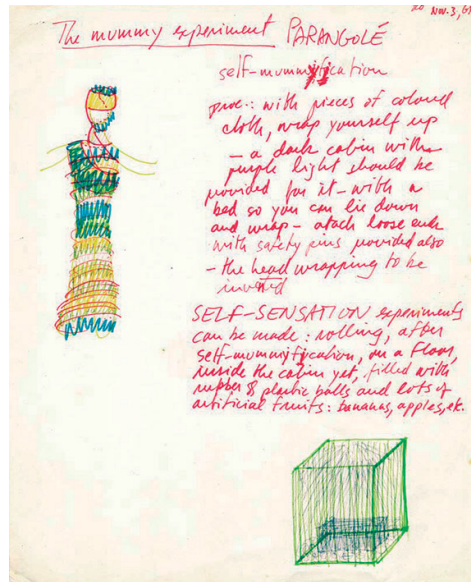 NOV. 3, 6
The mummy experiment PARANGOLÉ
self-mummyfication
proc.: with pieces of colored
cloth, wrap yourself up
– a dark cabin with a
purple light should be
provided for it – with a
bed so you can lie down
and wrap – atach loose ends
with safety pins provided also
– the head wrapping to be
invented
SELF-SENSATION experiments
can be made: rolling, after
self-mummyfication, on a floor,
inside the cabin yet, filled with
rubber & plastic balls and lots of
artificial fruits: bananas, apples, etc.